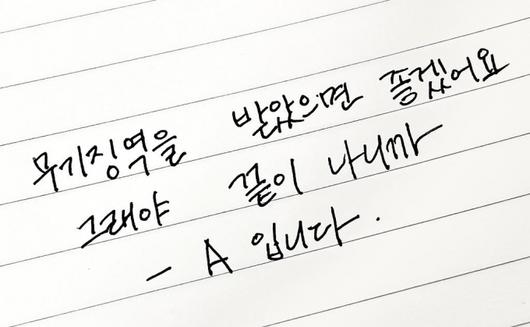 무기징역을 받았으면 좋겠어요
그래야 끝이 나니까
- A 입니다.